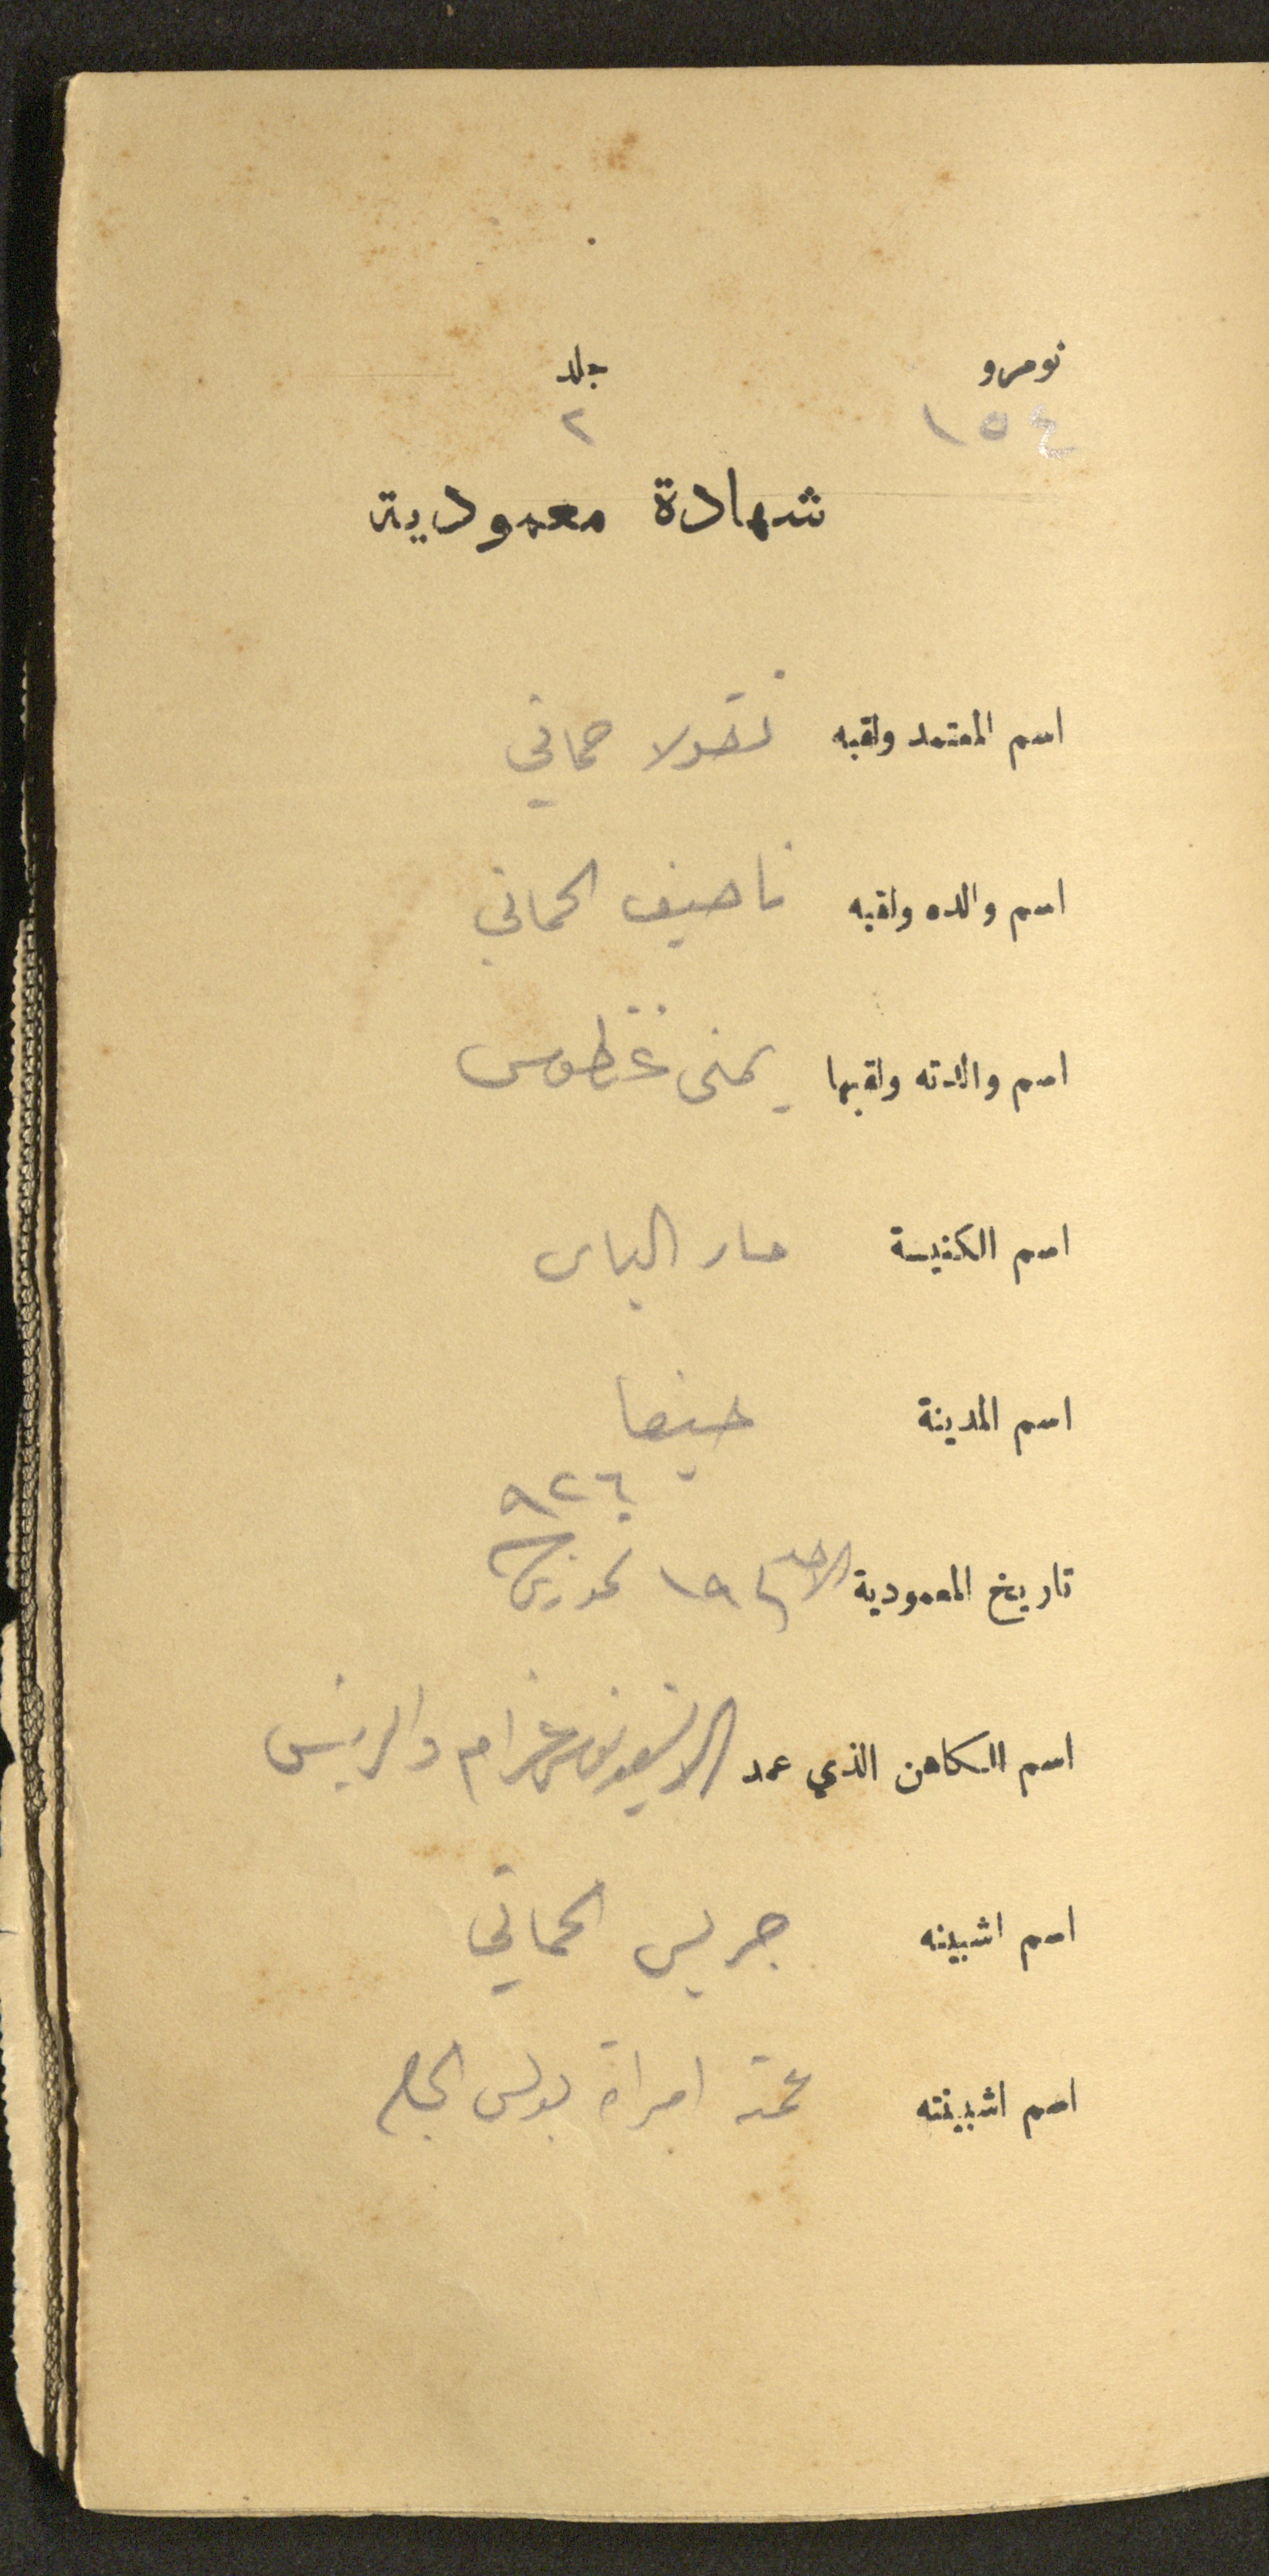 نومرو جلد
١٥٤ ٢
شهادة معمودية
اسم المعتمد ولقبه نقولا حماتي
اسم والده ولقبه ناصيف الحماتي
اسم والدته ولقبها يمنى غنطوس
اسم الكنيسة مار الياس
اسم المدينة حيفا
٩٢٦
تاريخ المعمودية الاحد في ١٩ تموز
اسم الكاهن الذي عمد
اسم اشبينه جريس الحماتي
اسم اشبينته امرأة بولس